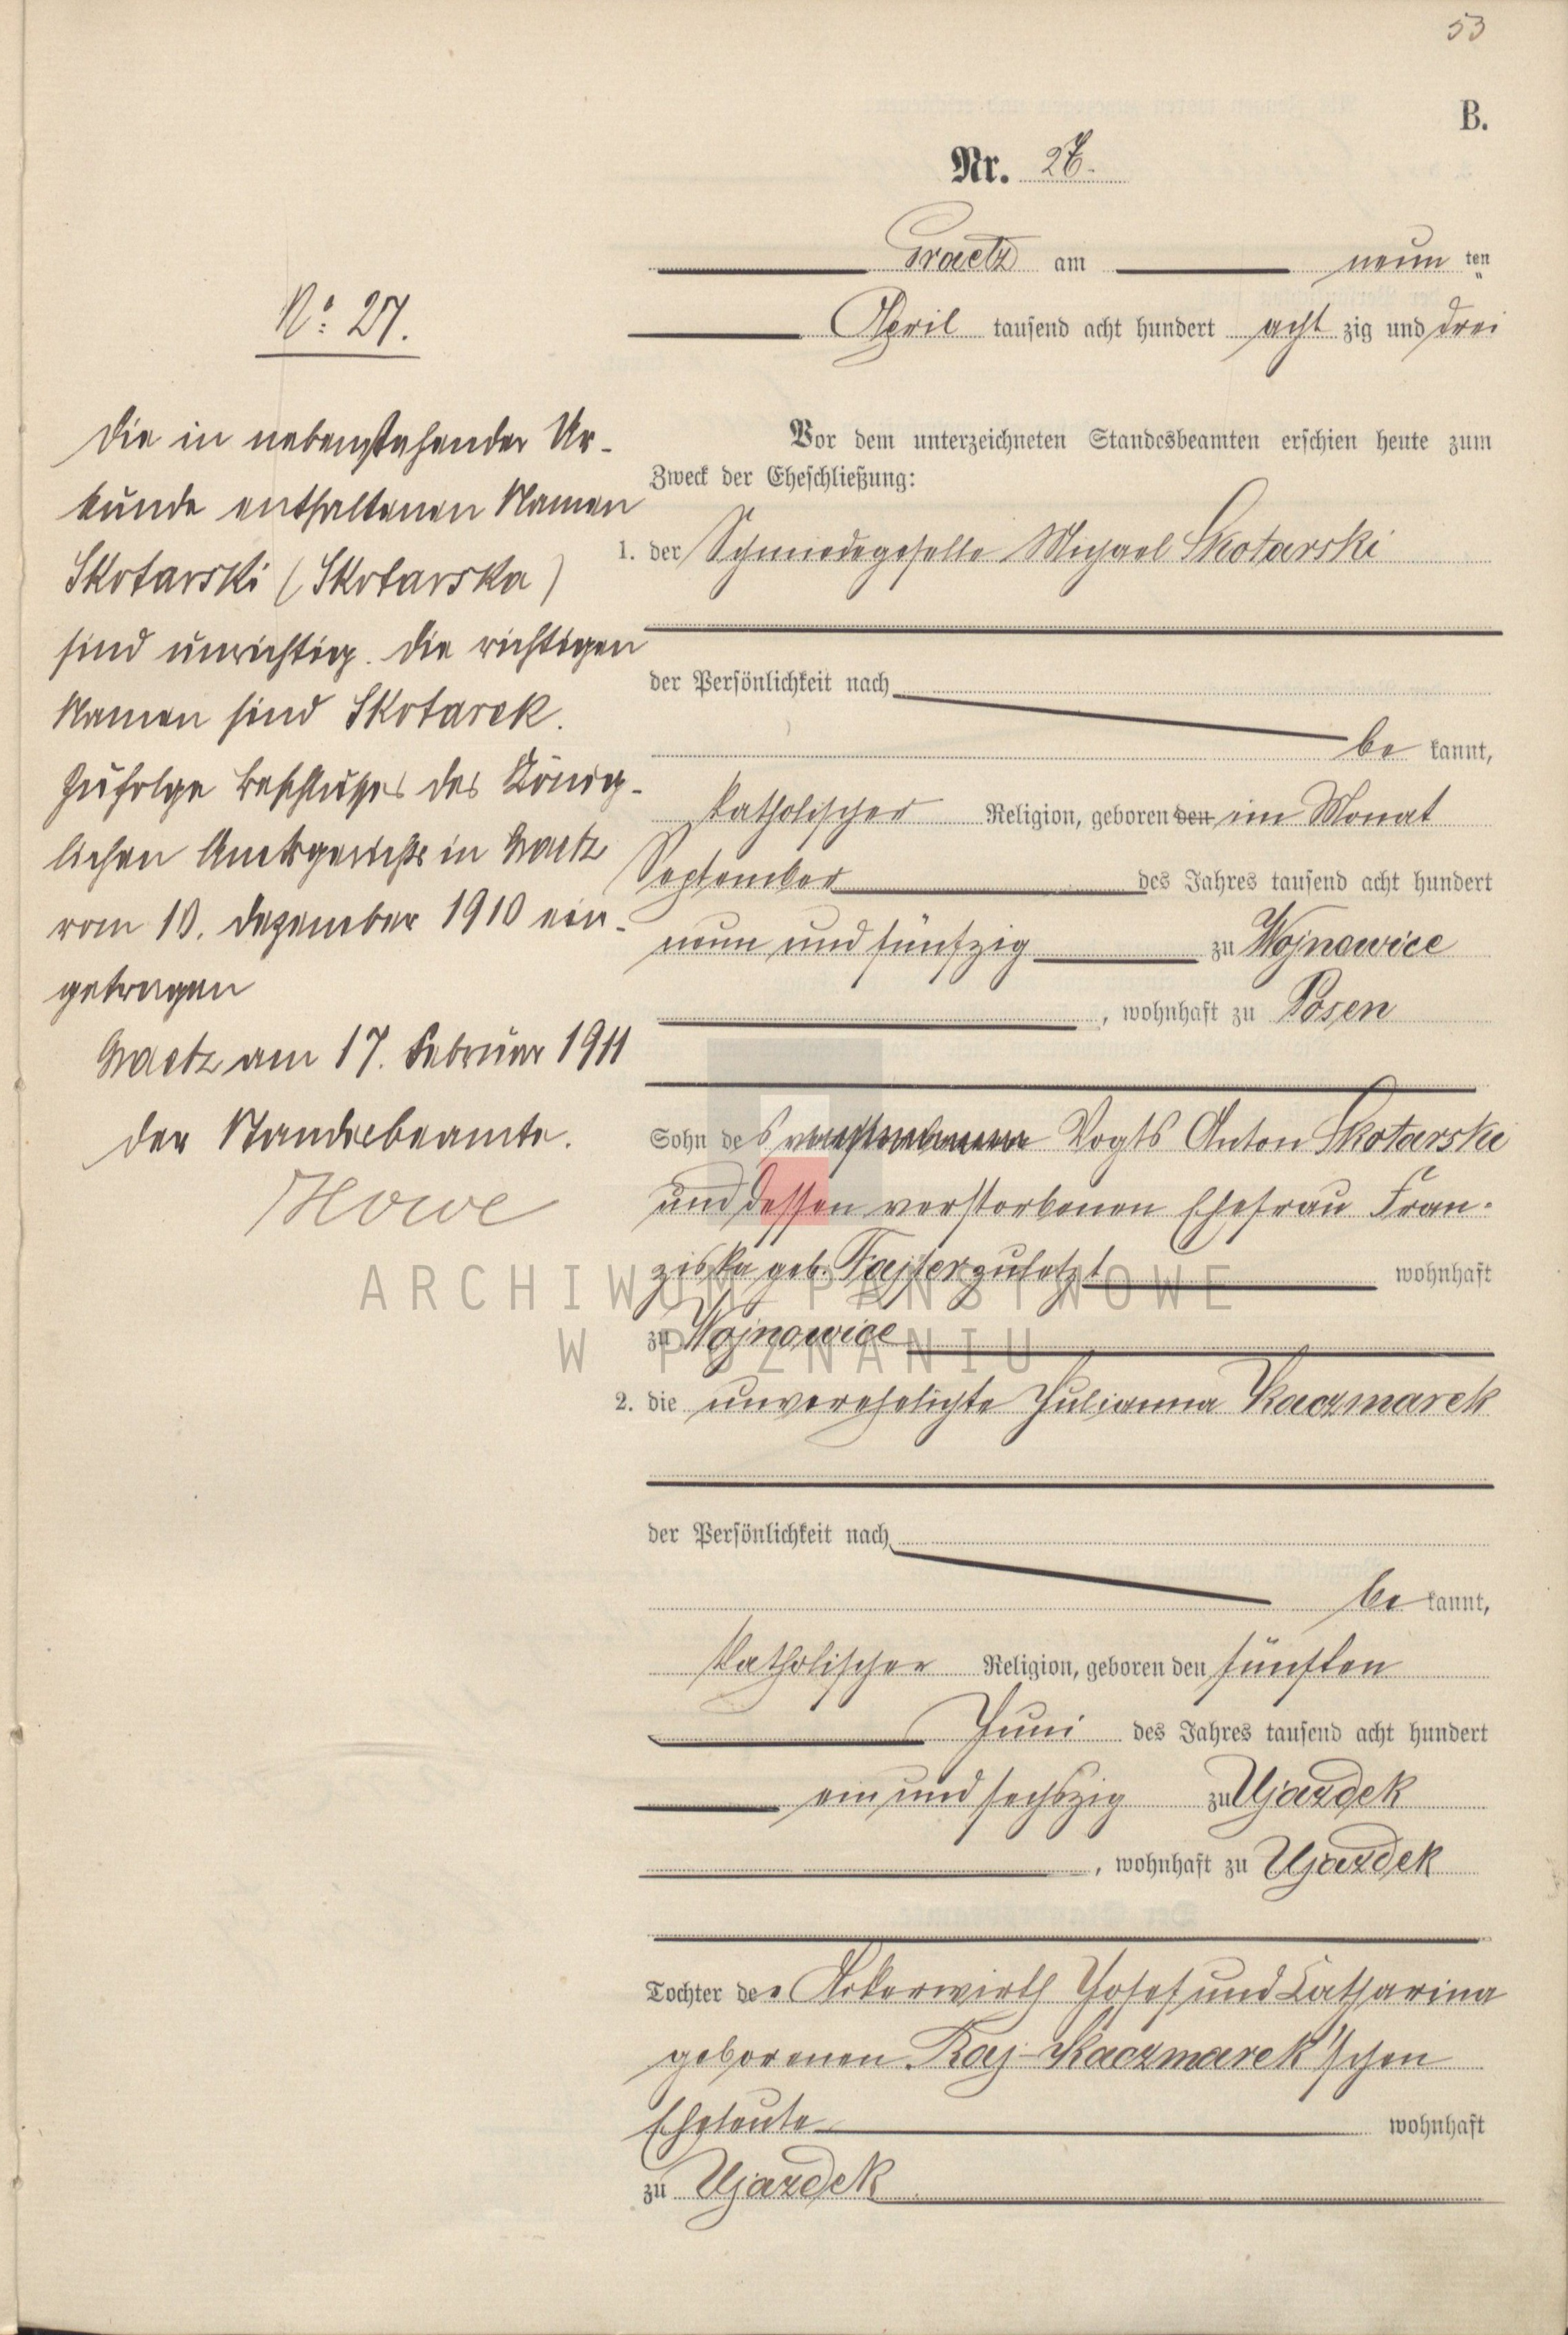 53
B.
Nr. 27.
Graetz am neun ten
April tausend acht hundert acht zig und drei
Vor dem unterzeichneten Standesbeamten erschien heute zum
Zweck der Eheschließung:
1. der Schmiedegeselle Michael Skotarski
der Persönlichkeit nach
be kannt,
katholischer Religion, geboren den im Monat
September des Jahres tausend acht hundert
neun und fünfzig zu Wojnowice
, wohnhaft zu Posen
Sohn des verstorbenen Vogts Anton Skotarski
und dessen verstorbenen Ehefrau Fran-
ziska geb. Fajfer zuletzt wohnhaft
zu Wojnowice
2. die unverehelichte Julianna Kaczmarek
der Persönlichkeit nach
be kannt,
katholischer Religion, geboren den fünften
Juni des Jahres tausend acht hundert
ein und sechszig zu Ujazdek
, wohnhaft zu Ujazdek
Tochter der Ackerwirth Josef und Catharina
geborenen Raj-Kaczmarek'schen
Eheleute wohnhaft
zu Ujazdek
No: 27.
Die in nebenstehender Ur-
kunde enthaltenen Namen
Skotarski (Skotarska)
sind unrichtig. Die richtigen
Namen sind Skotarek.
Zufolge Beschlußes des König-
lichen Amtsgerichts in Graetz
vom 10. Dezember 1910 ein-
getragen
Graetz am 17. Februar 1911
Der Standesbeamte.
Howe
ARCHIWUM PAŃSTWOWE
W POZNANIU